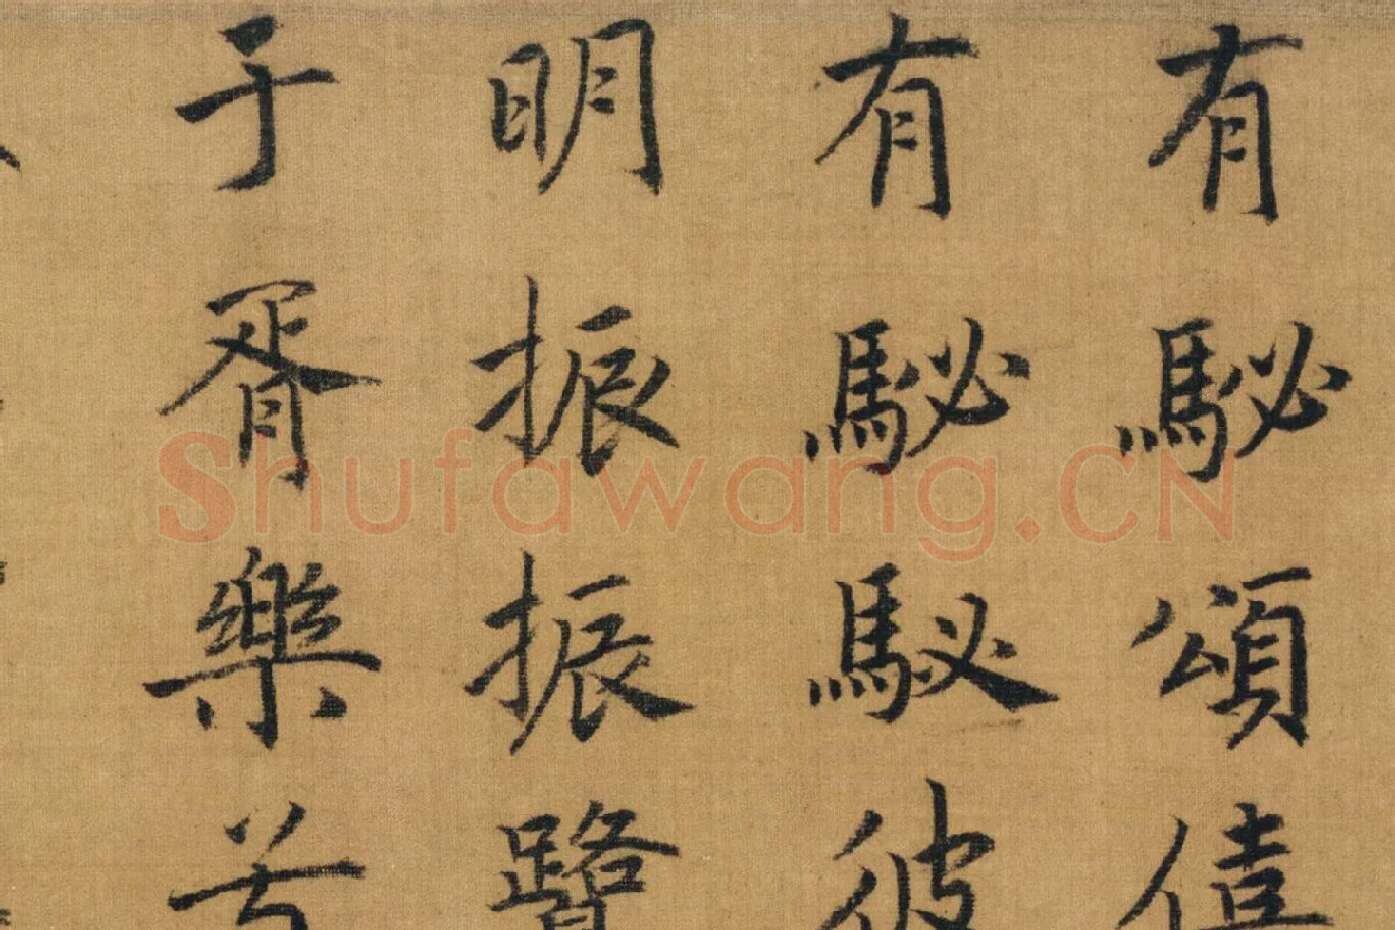 有駜頌僖
有駜駜彼
明振振鷺
于胥樂兮
Shufawang.CN